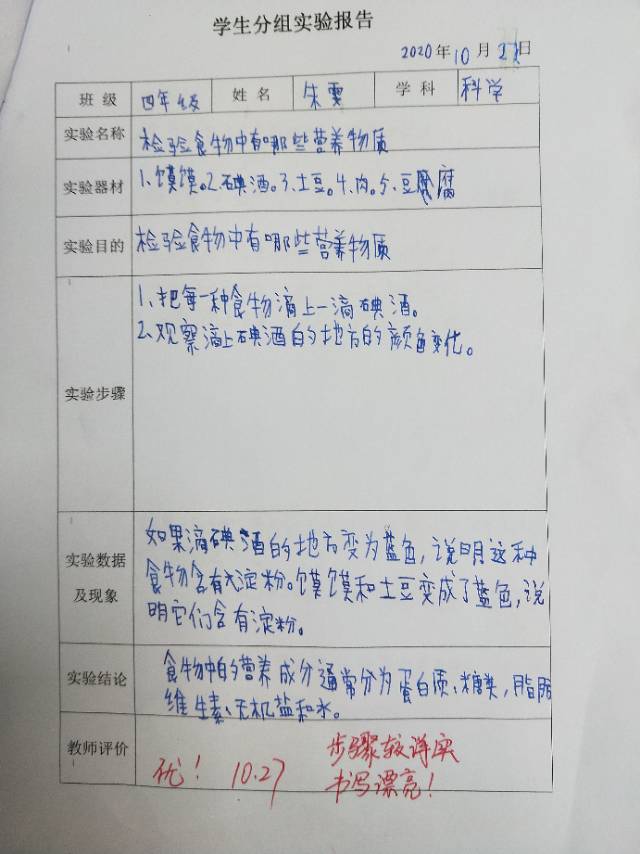 学生分组实验报告
2020年10月27日
班级 四年级 姓名 朱雯 学科 科学
实验名称 检验食物中有哪些营养物质
实验器材 1、馍馍。2、碘酒。3、土豆。4、肉。5、豆腐
实验目的 检验食物中有哪些营养物质
1、把每一种食物滴上一滴碘酒。
2、观察滴上碘酒的地方的颜色变化。
实验步骤
如果滴碘酒的地方变为蓝色，说明这种
实验数据 食物含有淀粉。馍馍和土豆变成了蓝色，说
及现象 明它们含有淀粉。
食物中的营养成分通常分为蛋白质、糖类，脂肪
实验结论 维生素、无机盐和水。
教师评价 优！ 10.27 步骤较详实
书写漂亮！